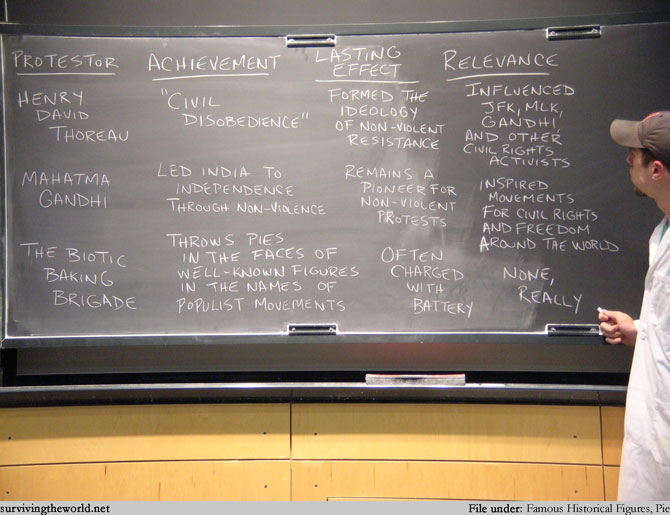 PROTESTOR
ACHIEVEMENT
LASTING
EFFECT
RELEVANCE
HENRY
DAVID
THOREAU
"CIVIL
DISOBEDIENCE"
FORMED THE
IDEOLOGY
OF NON-VIOLENT
RESISTANCE
INFLUENCED
JFK, MLK,
GANDHI,
AND OTHER
CIVIL RIGHTS
ACTIVISTS
MAHATMA
GANDHI
LED INDIA TO
INDEPENDENCE
THROUGH NON-VIOLENCE
REMAINS A
PIONEER FOR
NON-VIOLENT
PROTESTS
INSPIRED
MOVEMENTS
FOR CIVIL RIGHTS
AND FREEDOM
AROUND THE WORLD
THE BIOTIC
BAKING
BRIGADE
THROWS PIES
IN THE FACES OF
WELL-KNOWN FIGURES
IN THE NAMES OF
POPULIST MOVEMENTS
OFTEN
CHARGED
WITH
BATTERY
NONE,
REALLY
survivingtheworld.net
File under: Famous Historical Figures, Pie